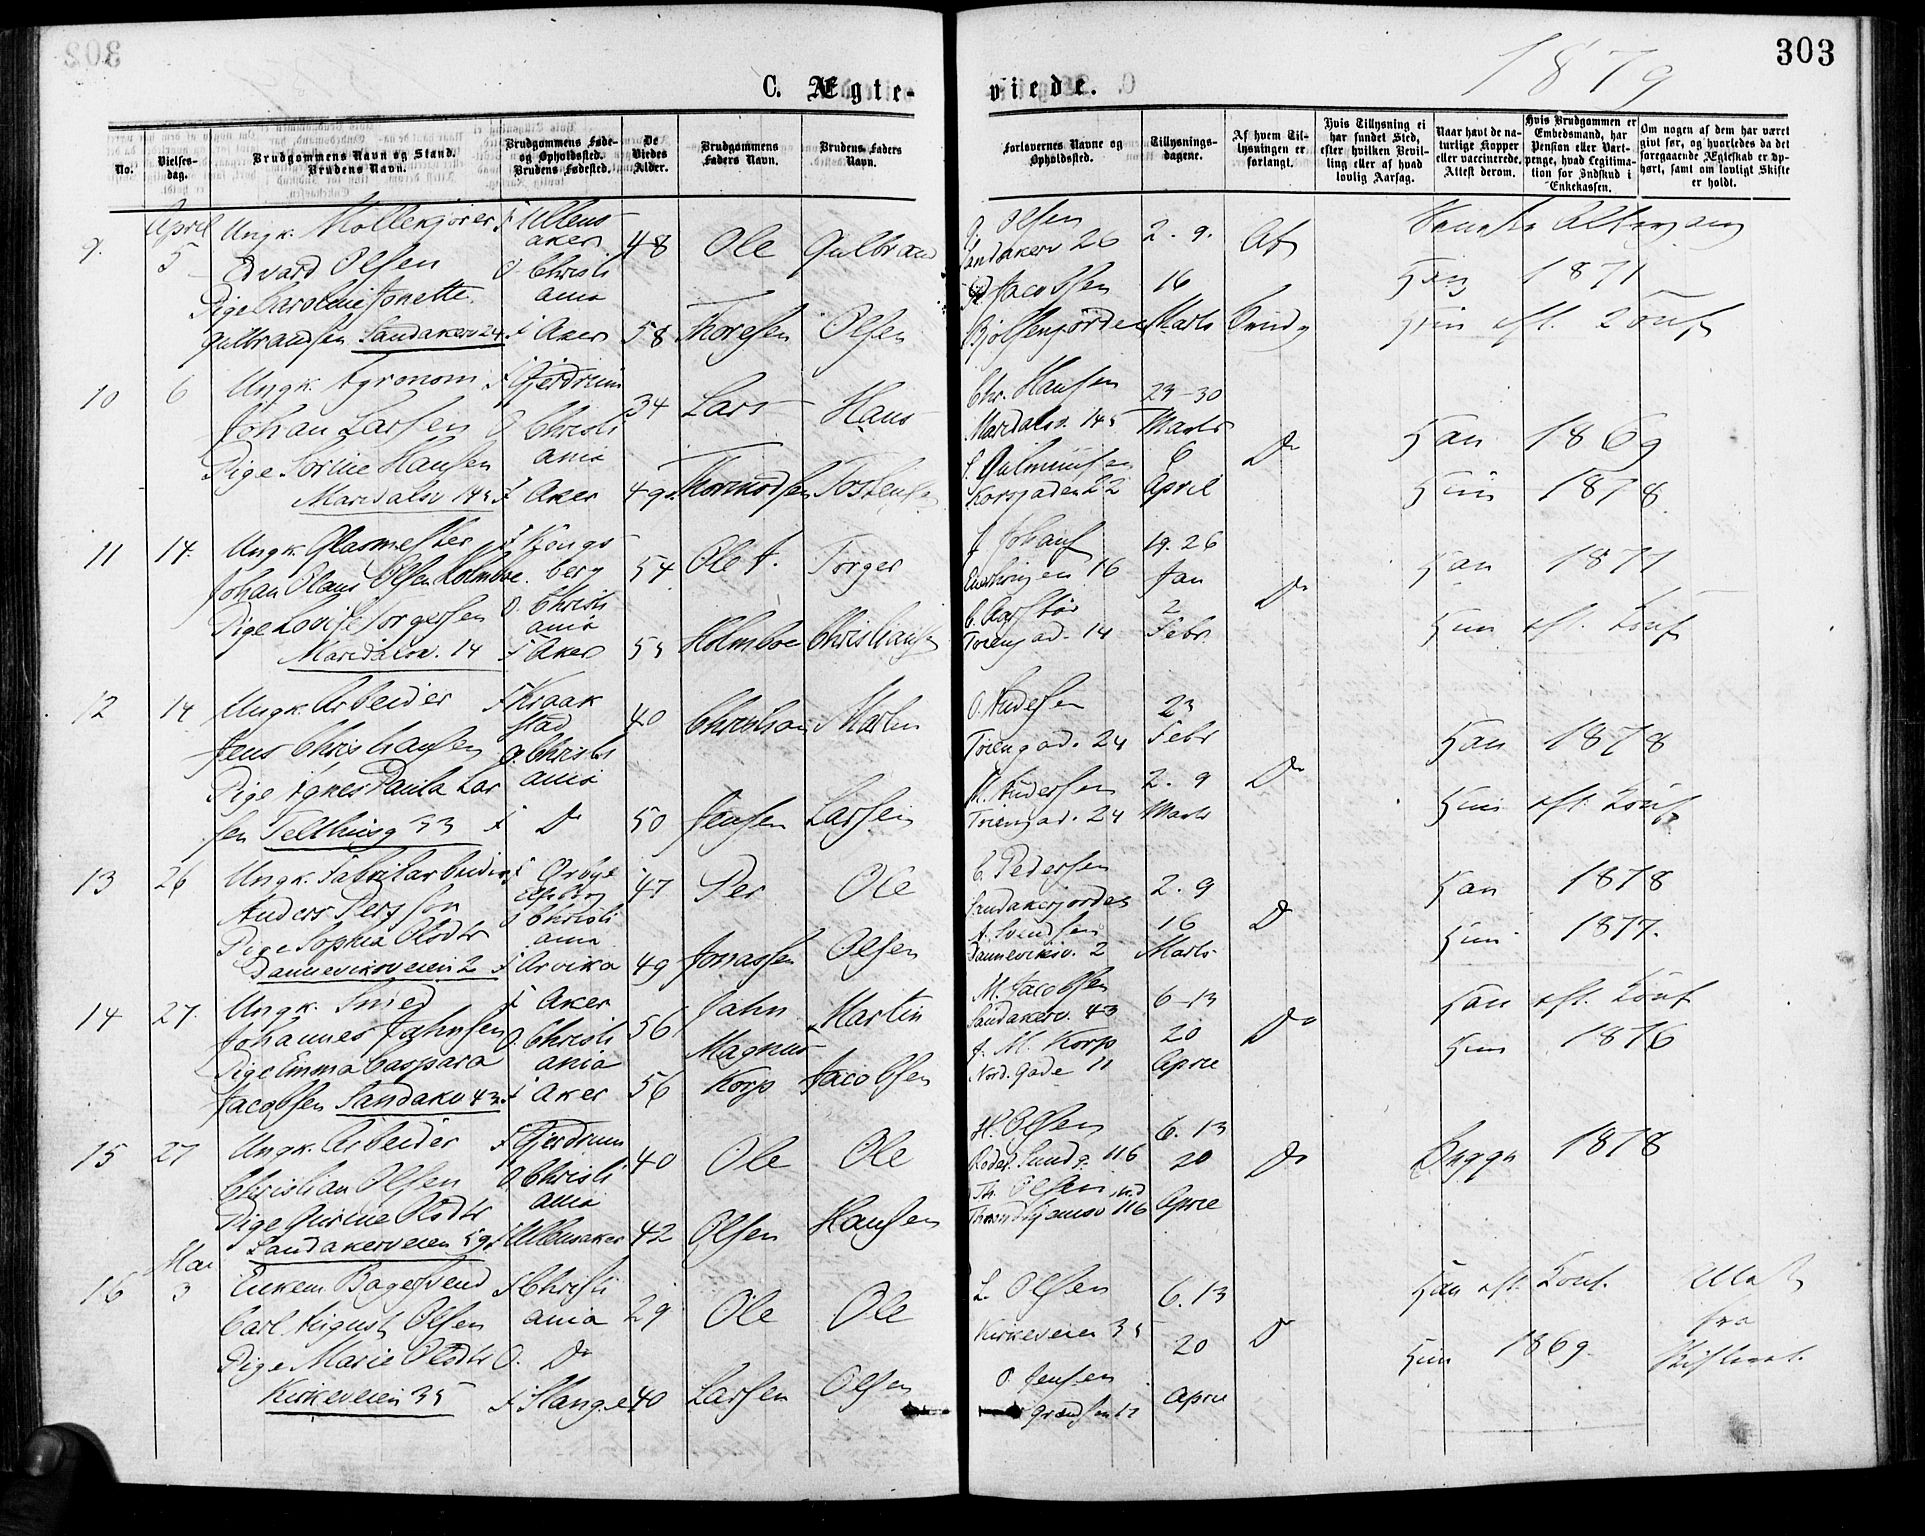 303
1879
C. Ægteviede.
No.
Vielsesdag.
Brudgommens Navn og Stand. Brudens Navn.
Brudgommens Føde- og Opholdssted. Brudens Fødested.
De Viedes Alder.
Brudgommens Faders Navn.
Brudens Faders Navn.
Forlovernes Navne og Opholdssted.
Tillysningsdagene.
Af hvem Tillysningen er forlangt.
Hvis Tillysning ei har fundet Sted, efter hvilken Bevilling eller af hvad lovlig Aarsag.
Naar havt de naturlige Kopper eller vaccinerede. Attest derom.
Hvis Brudgommen er Embedsmand, har Pension eller Vartpenge, hvad Legitimation for Indskud i Enkekassen.
Om nogen af dem har været givt før, og hvorledes da det foregaaende Ægteskab er ophørt, samt om lovligt Skifte er holdt.
9. April 5
Ungk. Møllekjører
Edvard Olsen
Pige Karoline Jonette
Gulbrandsen Sandakerv 24
F Ullensaker
O. Christiania
F Aker
48
58
Ole
Thoresen
Gulbrand
Olsen
Olsen
Sandakerv 26
Jacobsen
2. 9.
16
Marts
Af
Brudg
1871
10 6
Ungk. Agronom
Johan Larsen
Pige Sorine Hansen
Maridalsv 145
F Gjerdrum
O Christiania
F Aker
34
49
Lars
Hans
Chr. Hansen
Maridalsv. 145
Korsgaden 22
23-30
Marts
6
April
Do
Han 1869
Hun 1878
11 14.
Ungk. Glasmester
Johan Olaus Olsen Holmboe.
Pige Lovise Torgersen
Maridalsv. 14
F Kongsberg
O. Christiania
F Aker
54
55
Ole A.
Holmboe
Torger
Christiansen
16
Torvgad. 14
19. 26
Jan
2
Febr
Do
Han 1871
Hun eft. Konf
12 14
Ungk. Arbeider
Jens Christiansen
Pige Agnes Paula Larsen
Telthusg 33
F Kraakstad
O. Christiania
F Do
40
50
Christian
Jensen
Martin
Larsen
O. Andersen
Torvgad. 24
M. Andersen
Torvgad. 24
23
Febr
2. 9
Marts
Do
Han 1878
Hun eft. Konf
13 26
Ungk. Fabrikarbeider
Anders Persson
Pige Sophia Olsdtr
Dannevirksveien 2
O Christiania
F Arvika
47
49
Per
Jonassen
Ole
Olsen
C. Pedersen
Sandakerjordet
A. Svendsen
Dannevirksv. 2
2. 9
16
Marts
Do
Han 1878
Hun 1877.
14 27.
Ungk. Smed
Johannes Jahnsen
Pige Emma Caspara
Jacobsen Sandakv 43.
F Aker
O. Christiania
F Aker
56
56
Jahn
Magnus
Korp
Martin
Jacobsen
M. Jacobsen
Sandakerv. 43
J. M. Korp
Nord. gade 11
6-13
20
April
Do
Han eft. Konf
Hun 1876
15 27
Ungk. Arbeider
Christian Olsen
Pige Gurine Olsdtr
Sandakerveien 59
F Gjerdrum
O Christiania
F Ullensaker
40
42
Ole
Olsen
Ole
Hansen
H. Olsen
116
Th. Olsen
Throndhjemsv 116
6. 13
20
April
Do
Begge 1878
16 Mai 3
Enkem Bagersvend
Carl August Olsen
Pige Marie Olsdtr
Kirkeveien 35
F Christiania
O. Do
F Stange
29
40
Ole
Larsen
Ole
Olsen
L. Olsen
Kirkeveien 35
O. Jensen
Grændsen 17
6. 13
20
April
Do
Han eft. Konf.
Hun 1869.
Attest
fra
Skifteret.